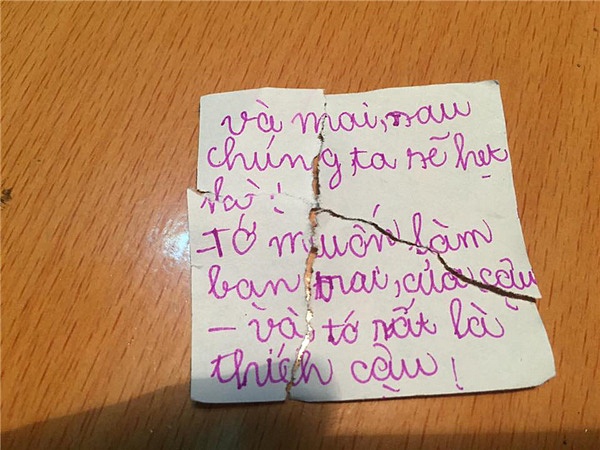 và mai, sau
chúng ta sẽ hẹt
Tớ muốn làm
bạn trai, của cậu
– và tớ rất là
thích cậu!